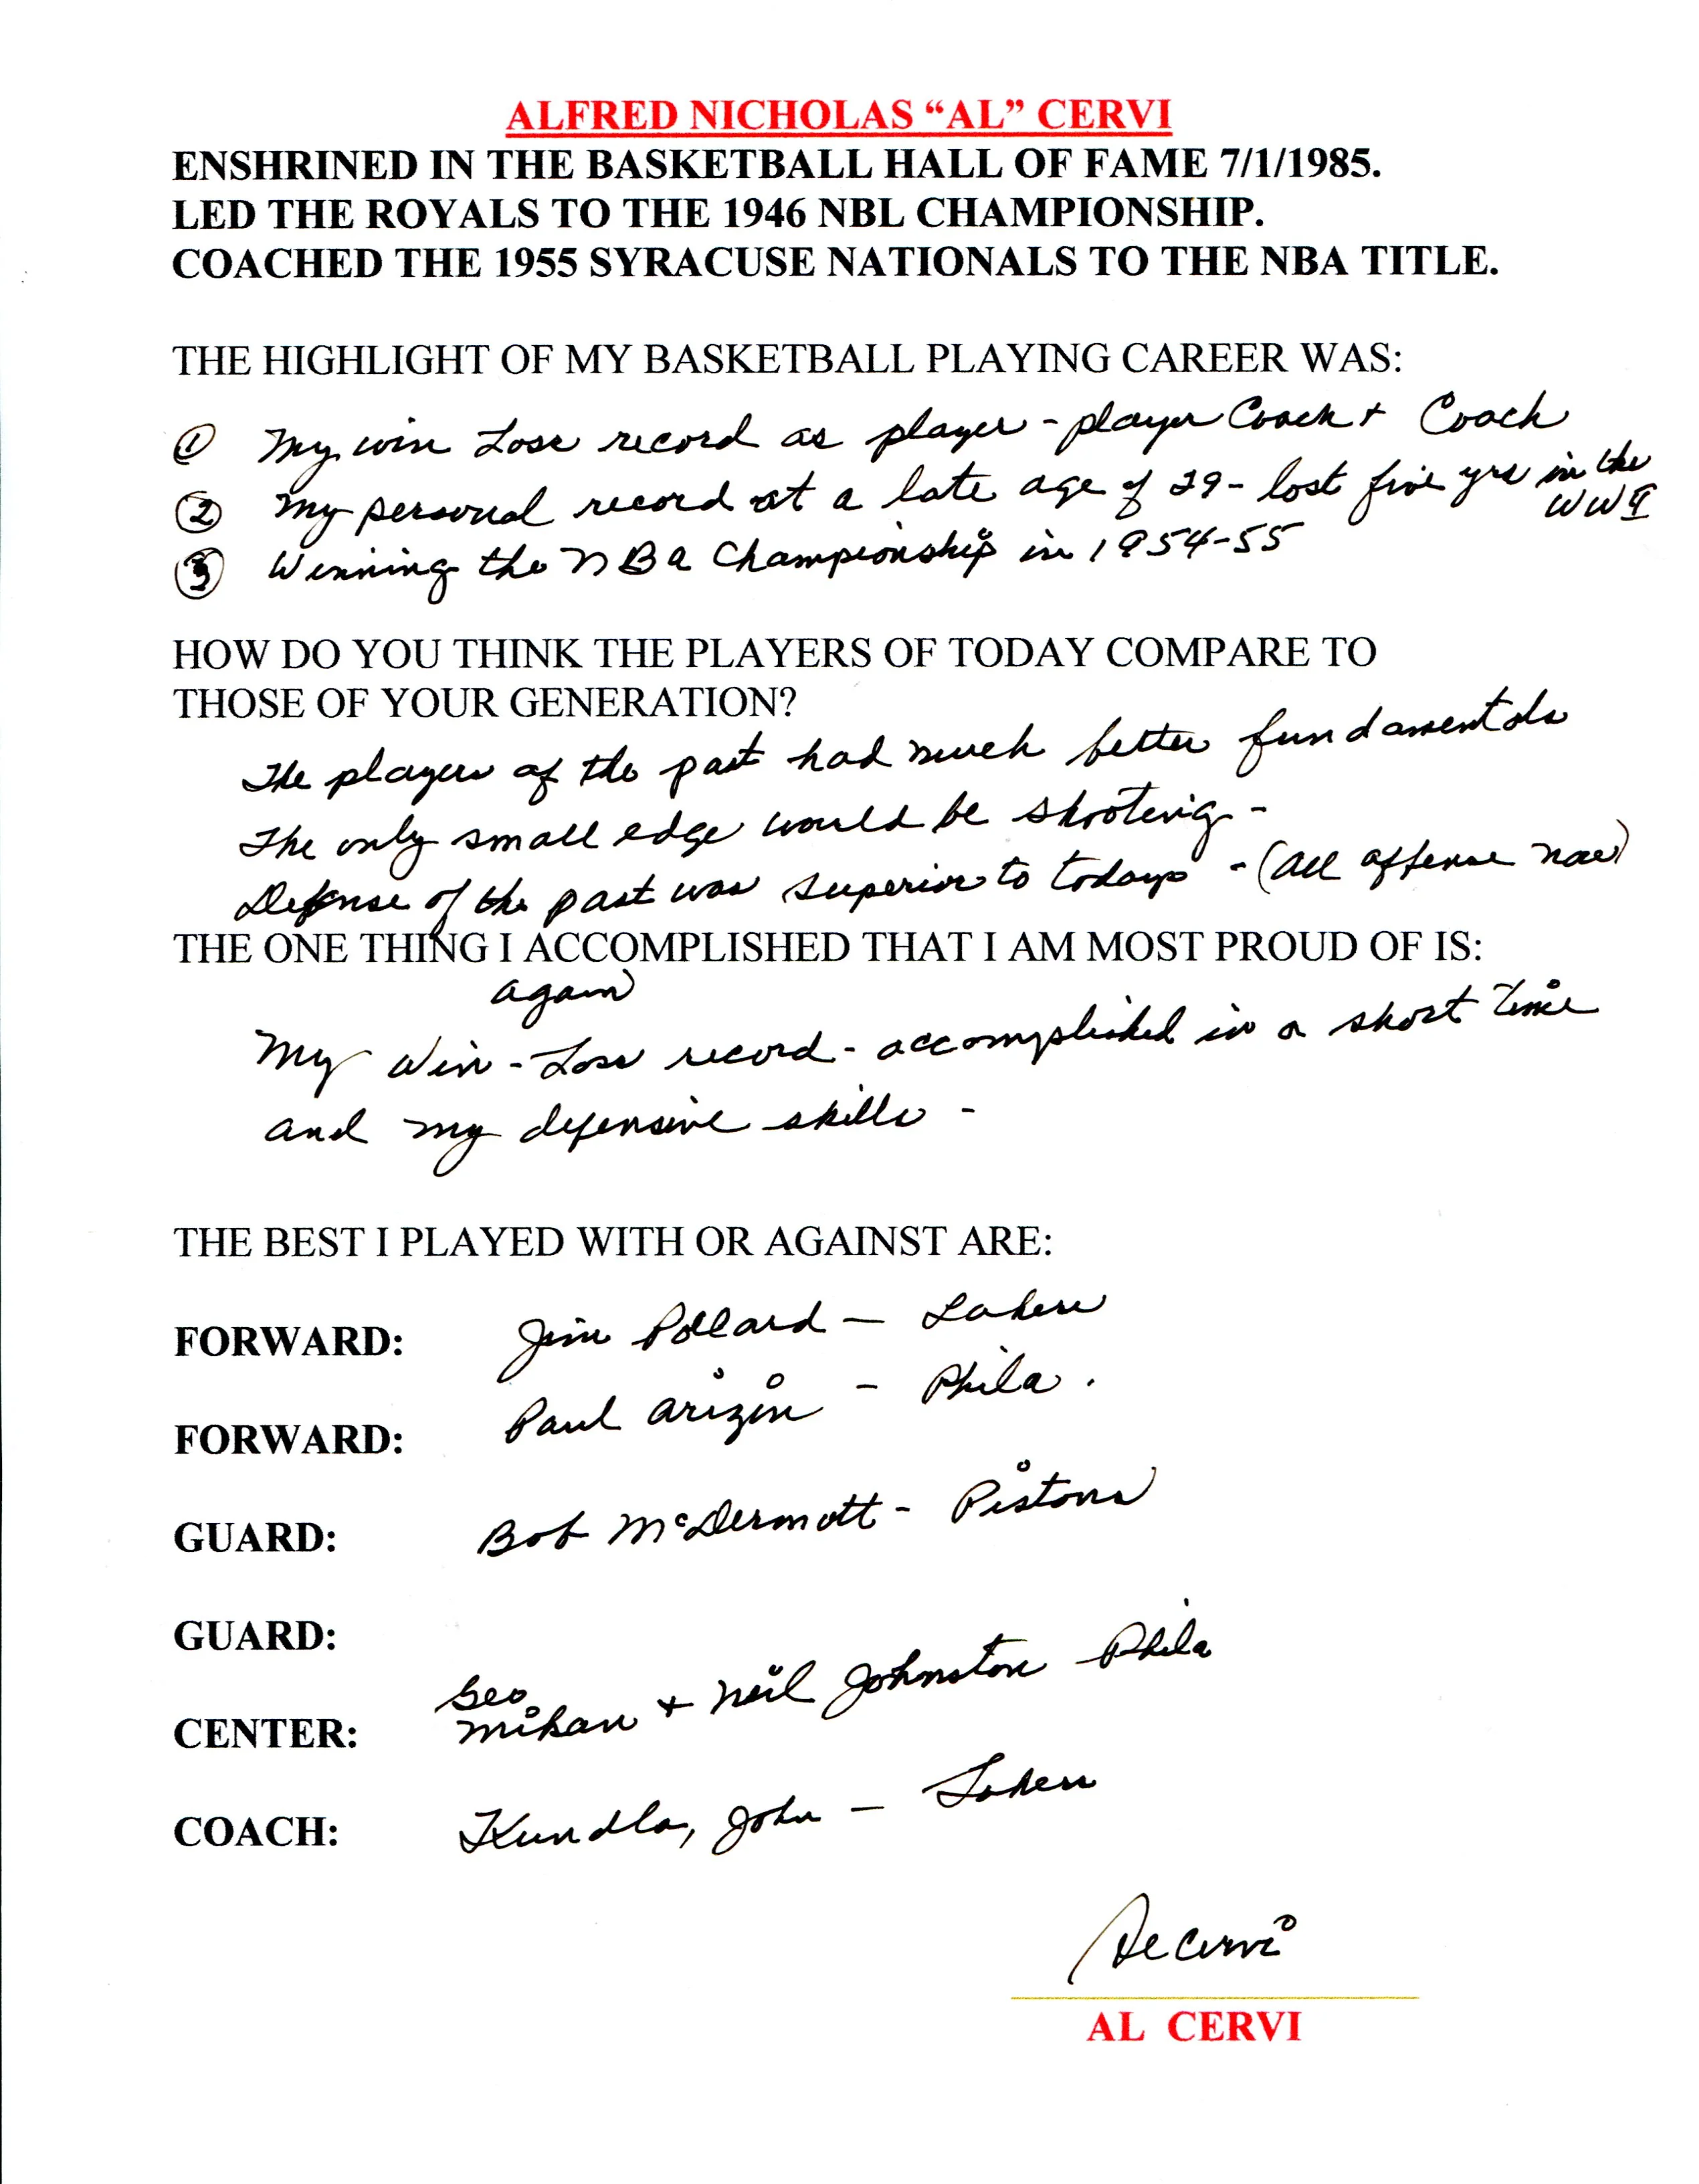 ALFRED NICHOLAS “AL” CERVI
ENSHRINED IN THE BASKETBALL HALL OF FAME 7/1/1985.
LED THE ROYALS TO THE 1946 NBL CHAMPIONSHIP.
COACHED THE 1955 SYRACUSE NATIONALS TO THE NBA TITLE.
THE HIGHLIGHT OF MY BASKETBALL PLAYING CAREER WAS:
① My win Loss record as player - player Coach + Coach
② My personal record at a late age of 29 - lost five yrs in the
WW II
③ Winning the NBA Championship in 1954-55
HOW DO YOU THINK THE PLAYERS OF TODAY COMPARE TO
THOSE OF YOUR GENERATION?
The players of the past had much better fundamentals
The only small edge would be shooting -
Defense of the past was superior to todays - (all offense now)
THE ONE THING I ACCOMPLISHED THAT I AM MOST PROUD OF IS:
again
My Win - Loss record - accomplished in a short time
and my defensive skills -
THE BEST I PLAYED WITH OR AGAINST ARE:
FORWARD: Jim Pollard - Lakers
FORWARD: Paul Arizin - Phila.
GUARD: Bob McDermott - Pistons
GUARD:
Geo
CENTER: Mikan + Neil Johnston Phila
COACH: Kundla, John - Lakers
Al Cervi
AL CERVI